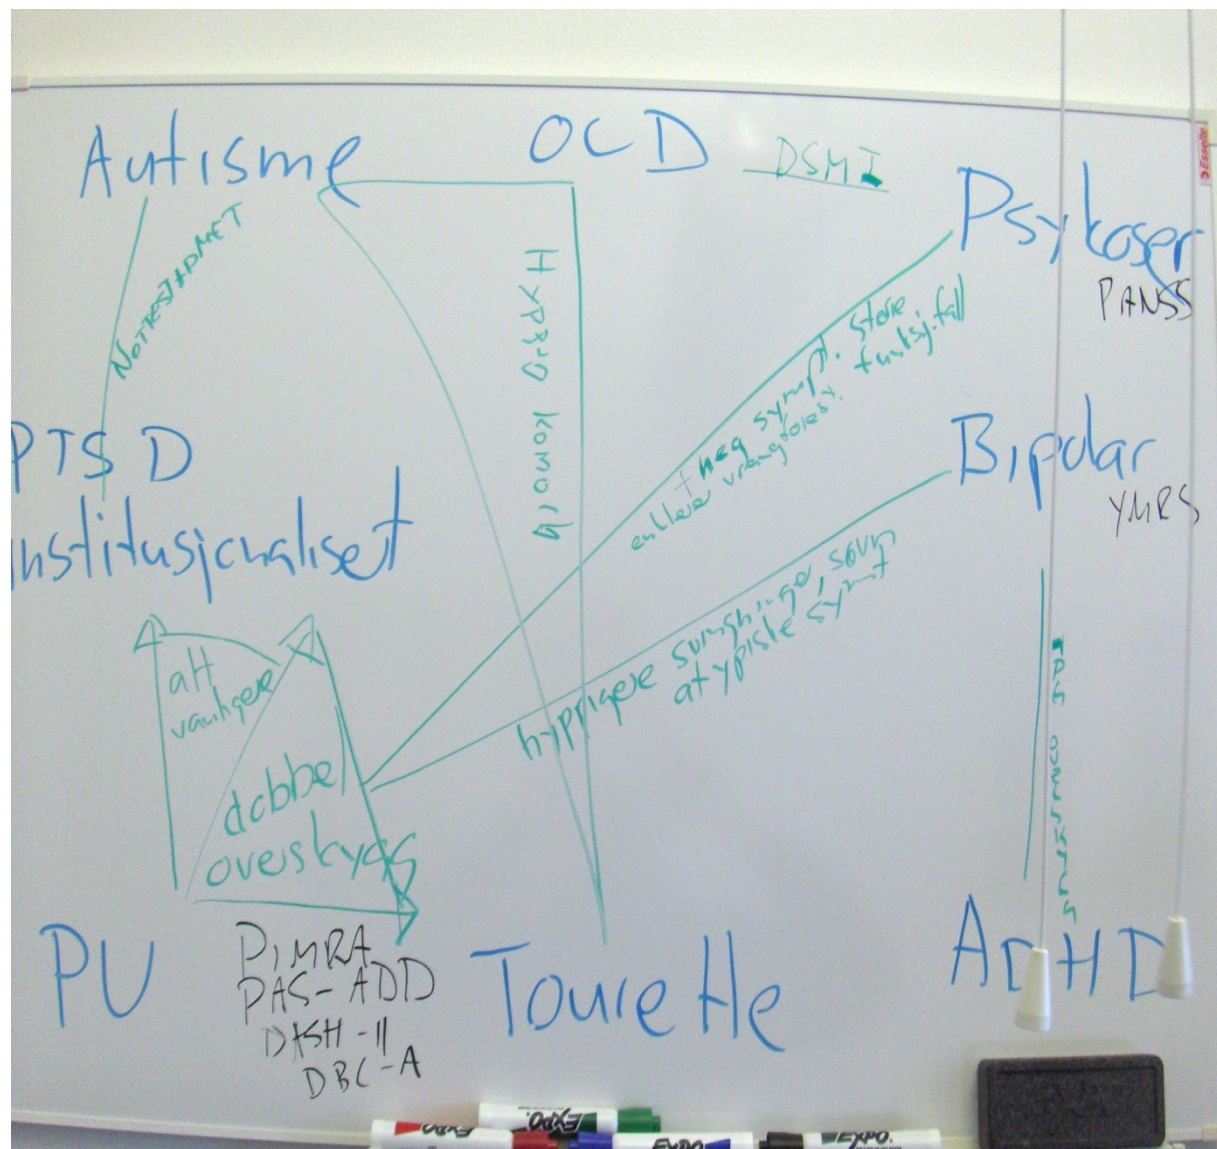 Autisme
OCD
DSM I
Esselte
Psykoser
PANSS
HYPPIG KOMORB
+ neg sympt. store
funksj.fall
enklere vrangforest.
PTSD
institusjonalisert
Bipolar
YMRS
hyppigere svingninger, søvn
atypiske sympt
alt
vanligere
dobbel
overskygg
PU
PIMRA
PAS-ADD
DASH-II
DBC-A
Tourette
ADHD
EXPO.
EXPO.
EXPO.
EXPO.